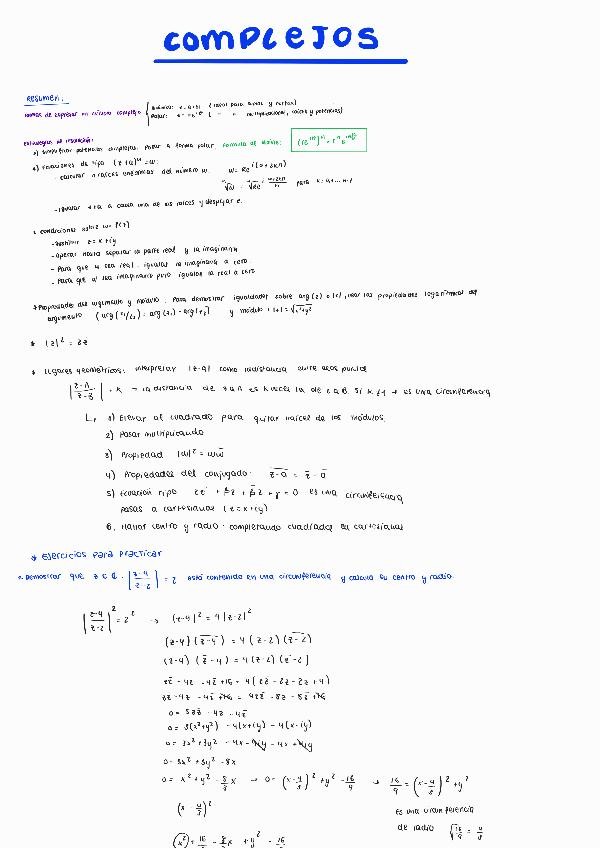 COMPLEJOS
Resumen:
Formas de expresar un número complejo
Binómica: z = a+bi (ideal para sumas y restas)
Polar: multiplicaciones, raíces y potencias)
Estrategias de resolución:
simplificar potencias complejas: Pasar a forma polar Fórmula de Moivre:
Ecuaciones de tipo (z+a)ⁿ = w:
- calcular n raíces enésimas del número w.
para k=0,1...n-1
- igualar z+a a cada una de las raíces y despejar z.
condiciones sobre w= f(z)
- sustituir z = x+iy
- operar hasta separar la parte real y la imaginaria
- Para que w sea real: igualas la imaginaria a cero
- Para que w sea imaginario puro igualas la real a cero
* Propiedades del argumento y módulo: Para demostrar igualdades sobre arg(z) o |z|, usar las propiedades logarítmicas del
argumento (arg(z₁/z₂) = arg(z₁) - arg(z₂) y módulo
* Lugares geométricos: interpretar |z-a| como la distancia entre dos puntos
|z-A / z-B| = K → la distancia de z a A es K veces la de z a B Si K≠1 → es una circunferencia
1) Elevar al cuadrado para quitar raíces de los módulos.
2) Pasar multiplicando
3) Propiedad |w|² = ww̄
4) Propiedades del conjugado:
5) Ecuación tipo es una circunferencia
pasas a cartesianas (z = x+iy)
6. Hallar centro y radio: completando cuadrados en cartesianas
* Ejercicios para practicar
Demostrar que z ∈ ℂ : |z-4 / z-2| = 2 está contenido en una circunferencia y calcula su centro y radio
|z-4 / z-2|² = 2² → |z-4|² = 4|z-2|²
(z-4)(z̄-4) = 4(z-2)(z̄-2)
0 = 3zz̄ - 4z - 4z̄
0 = 3(x²+y²) - 4(x+iy) - 4(x-iy)
0 = 3x² + 3y² - 4x - 4iy - 4x + 4iy
0 = 3x² + 3y² - 8x
0 = x² + y² - 8/3 x → 0 = (x - 4/3)² + y² - 16/9 → 16/9 = (x - 4/3)² + y²
es una circunferencia
de radio √16/9 = 4/3